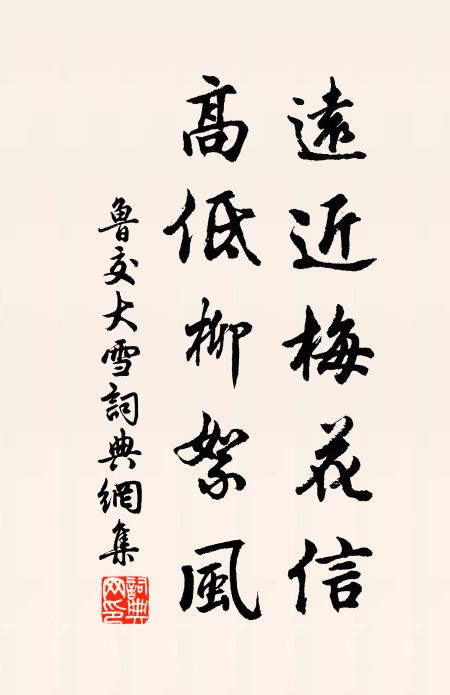 遠近梅花信
高低柳絮風
魯交大雪詞典網集
詞典網印